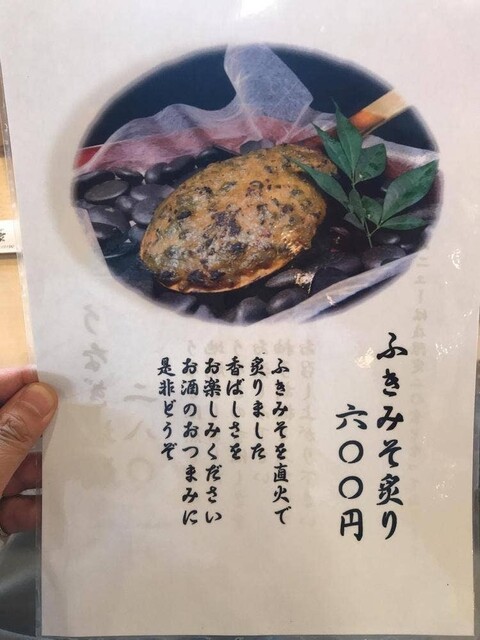 ふきみそ炙り
六〇〇円
ふきみそを直火で
炙りました
香ばしさを
お楽しみください
お酒のおつまみに
是非どうぞ